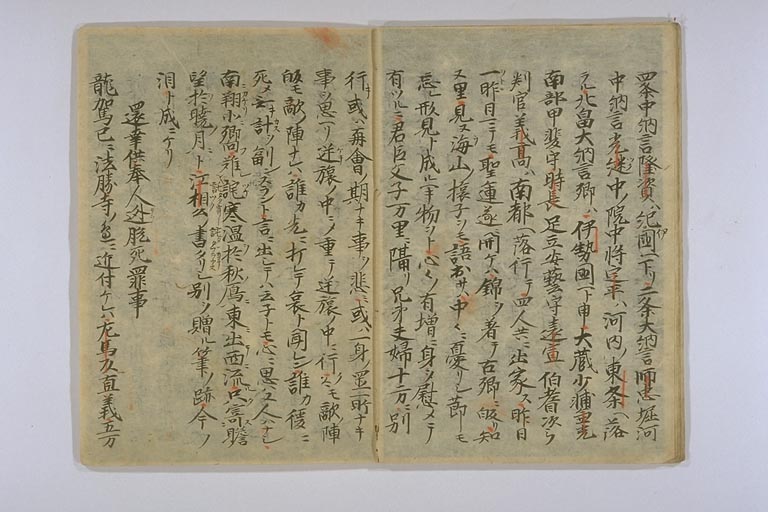 四条中納言隆資ハ紀國ヘ下リ二条大納言師忠堀河
中納言光継中ノ院中将定平ハ河内ノ東条ヘ落
ラル北畠大納言卿ハ伊勢國ヘ下申大蔵少輔重光
南部甲斐守時長足立安藝守遠宣伯耆次ら
判官義高ハ南都ヘ落行テ四人共ニ出家ス昨日
一昨日ニテモ聖運遂ニ開ケハ錦ヲ著テ古郷ニ皈リ知
又里見ヌ海山ノ様子ヲモ語出サハ中々ニ憂リシ節モ
忘レ形見ト成ニキ物ヲト心々ノ有増ニ身ヲ慰メテ
有ツルニ君臣父子万里ニ隔リ兄弟夫婦十方ニ別
行キ或ハ再會ノ期ナキ事ヲ悲ミ或ハ一身置所ナキ
事ヲ思ヘリ逆旅ノ中ニ重テ逆旅ノ中ニ行スモ敵陣
皈モ敵ノ陣ナレハ誰カ先ニ打レテ哀ト聞レン誰カ後ニ
死メ計ヲ副ラント言ニ出シテハ云子トモ心ニ思ヌ人ハナシ
南翔小郷難詫寒温於秋鴈東出西流只寄贈
望於暁月ハト江相公書タリシ別ノ贈ル筆ノ跡今ノ
泪ト成ニケリ
還幸供奉人々被死罪事
龍駕已ニ法勝寺ノ邊ニ近付ケハ左馬頭直義五万